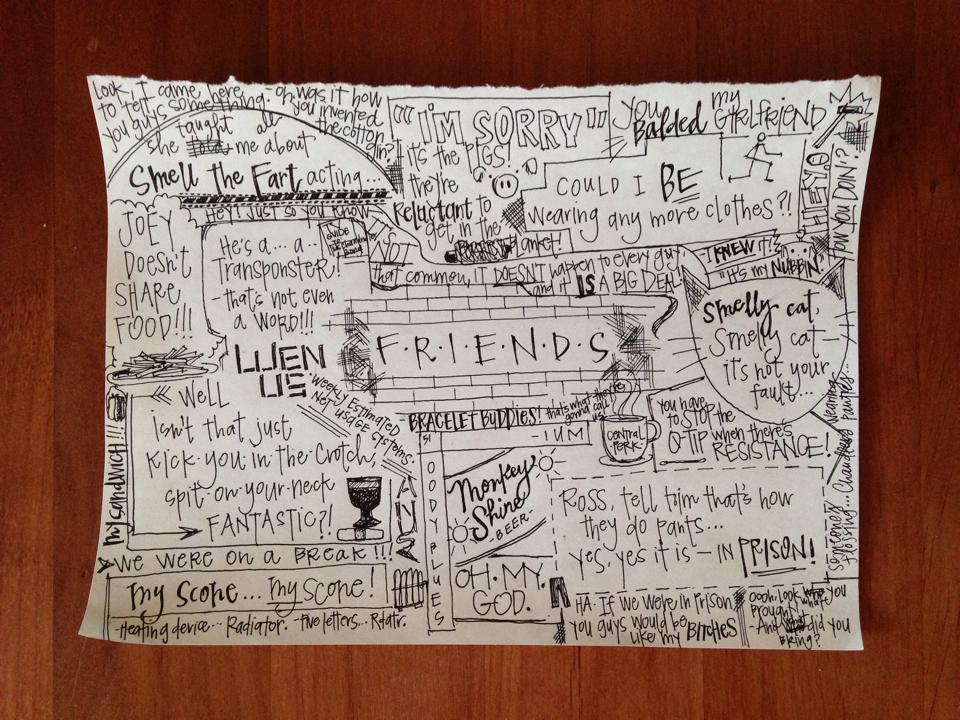 Look, I came here
to tell
you guys something.
oh, was it how
you invented
the cotton
gin?
she taught all
me about
Smell the Fart acting...
"I'M SORRY"
it's the PIGS!
they're
Reluctant to
get in the
blanket!
you Balded my GIRLFRIEND
COULD I BE
wearing any more clothes?!
HEY,
HOW YOU DOIN'?
JOEY
DOESN't
SHARE
FOOD!!!
HEY! Just so you know
He's a... a..
Transponster!
-that's not even
a WORD!!!
NOT
that common, IT DOESN'T happen to every guy
and it IS A BIG DEAL
-I KNEW it!
"it's my NUBBIN"
Smelly cat,
Smelly cat-
it's not your
fault...
F·R·I·E·N·D·S
WEENUS
Weekly Estimated
Net Usage Systems
BRACELET BUDDIES! that's what they're
gonna call
us!
-IUM
CENTRAL
PERK
you have
to STOP the
Q-TIP when there's
RESISTANCE!
Well
Isn't that just
Kick-you-in-the-Crotch,
spit-on-your-neck
FANTASTIC?!
My SANDWICH!!!
Monkey
Shine
-BEER-
OODYBLUES
Ross, tell him that's how
they do pants...
yes, yes it is - IN PRISON!
someone's wearing
flossing... Chandler's Panties...
WE WERE ON A BREAK!!!
my scone... my scone!
OH. MY.
GOD.
-Heating device... Radiator. -Five letters... Rdatr.
HA. If we were in Prison
you guys would be
like my BITCHES
oooh, look you
brought
-And did you
bring?